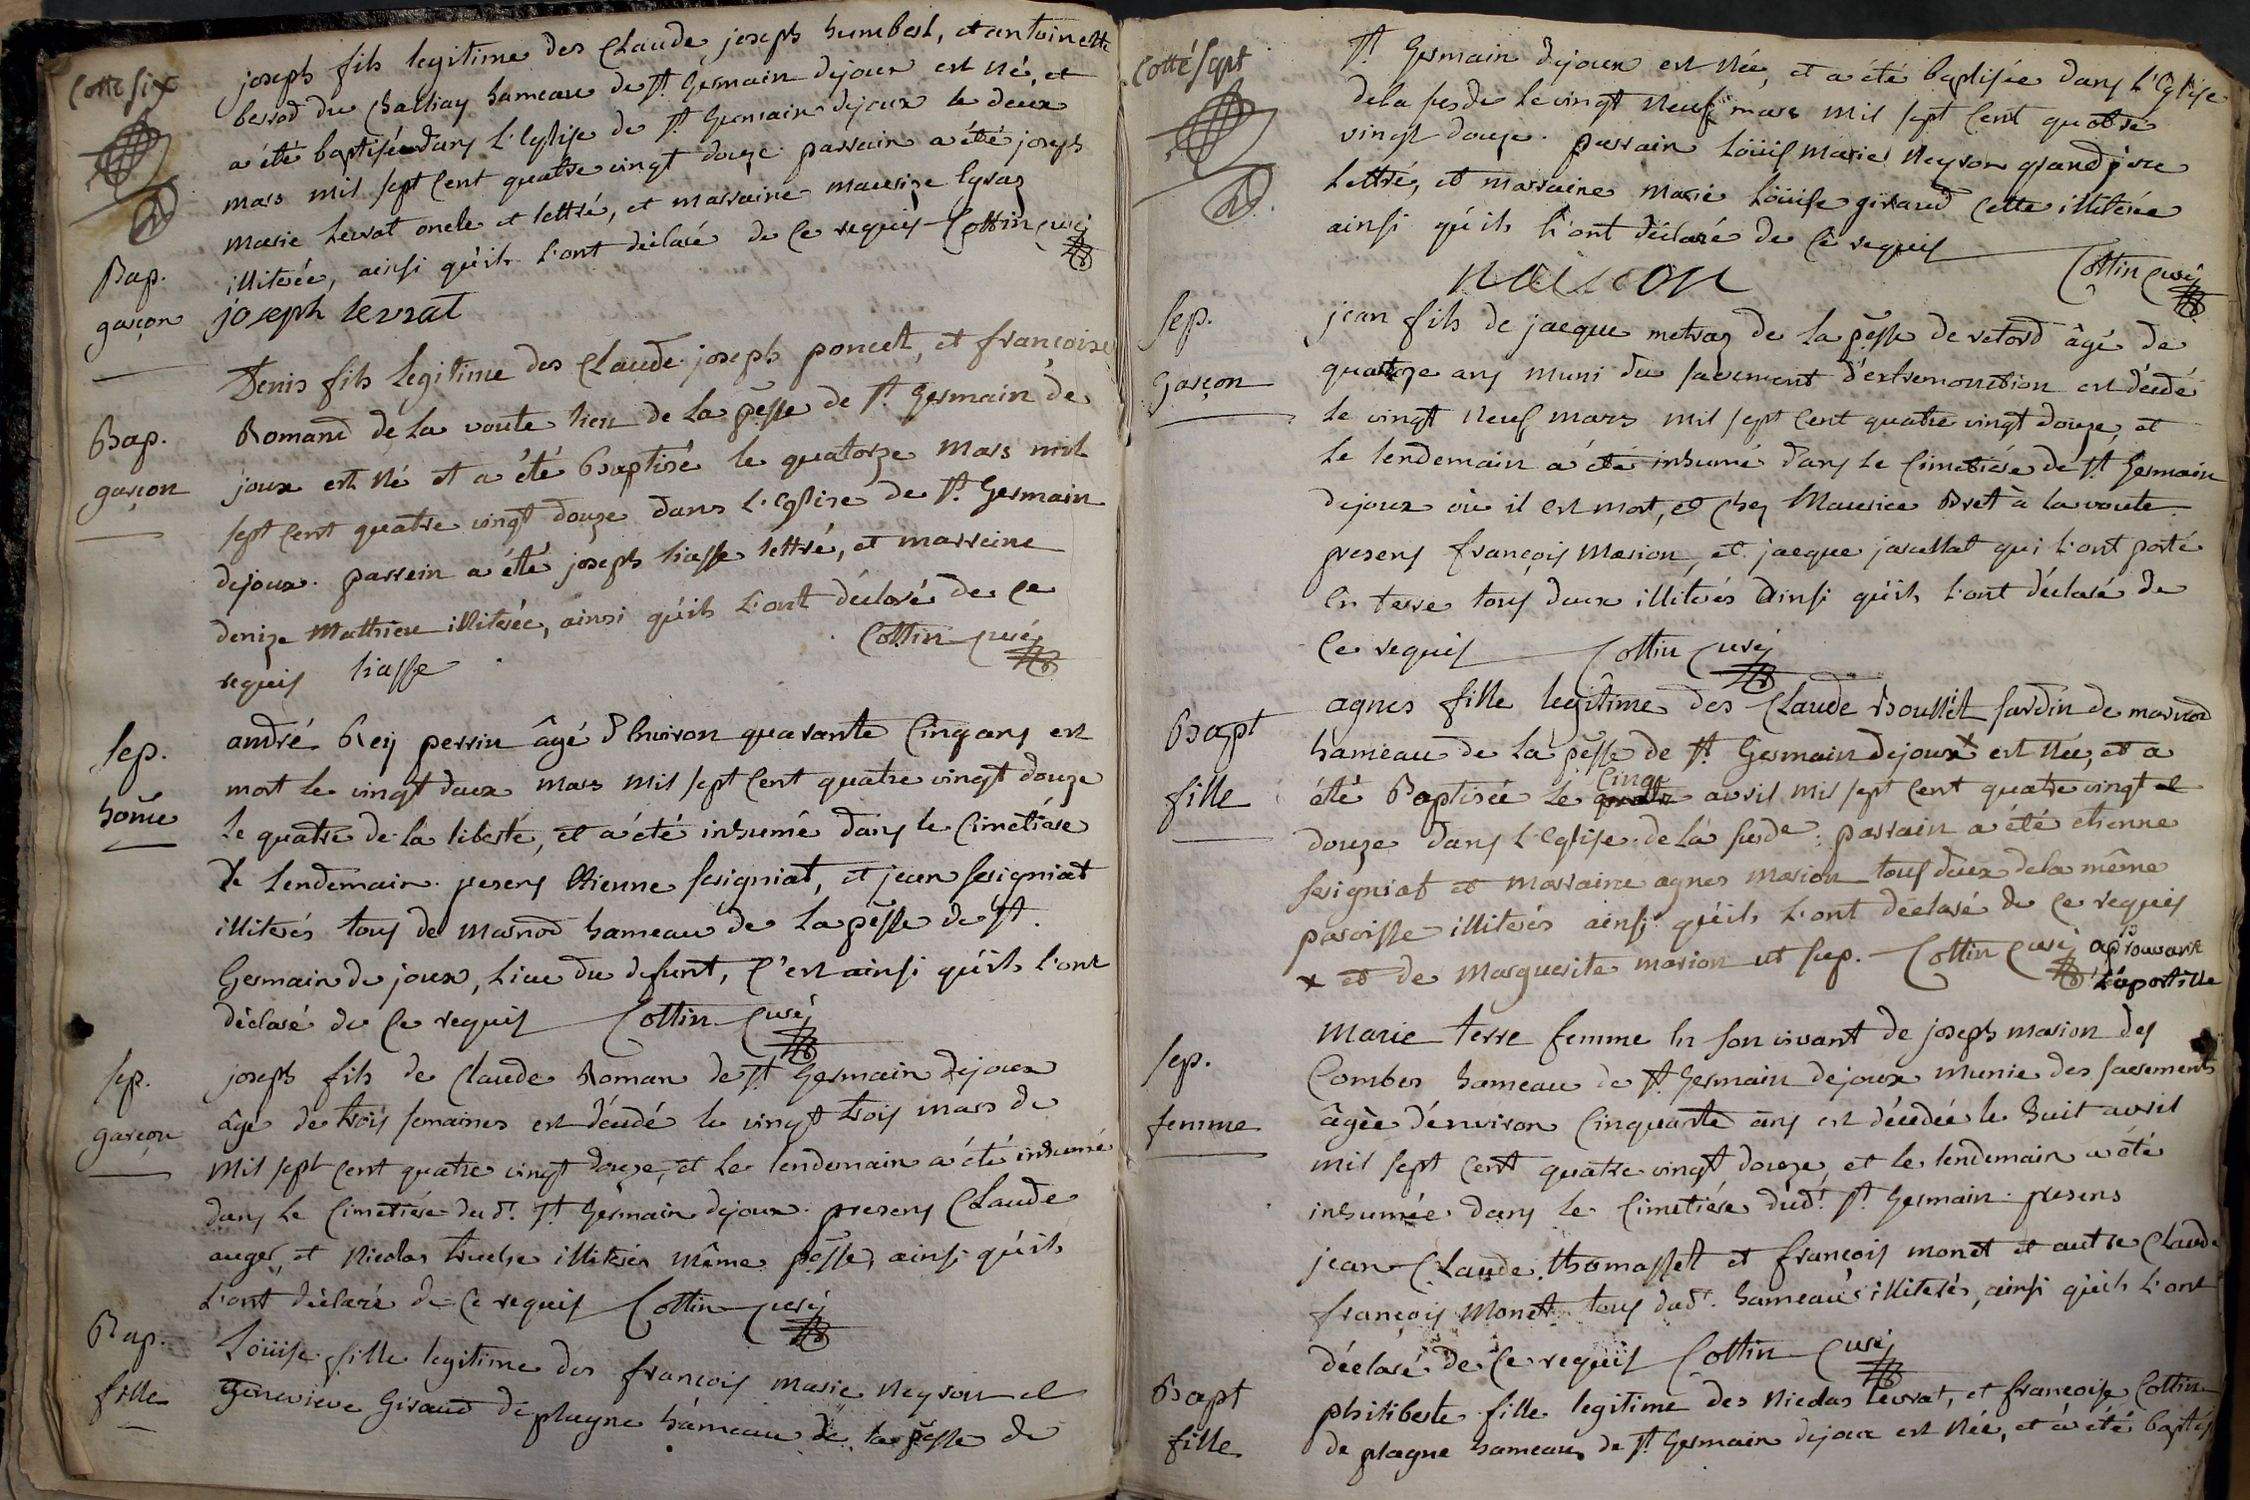 Cotte six
joseph fils legitime des Claude joseph humbert, et antoinette
berrod du Challiay hameau de St. Germain dejoux est né, et
a été baptisé dans l'Eglise de St. Germain dejoux le deux
mars mil sept Cent quatre vingt douze. parrain a été joseph
marie Levrat oncle et lettré, et marraine maurize
illiterée, ainsi qu'ils l'ont déclaré de Ce requis Cottin Curé
Bap.
garçon
joseph levrat
Denis fils legitime des Claude joseph poncet, et françoise
Bap.
garçon
Romand de la voute lieu de La pesse de St. Germain de
joux est né et a été Baptisé le quatorze mars mil
sept Cent quatre vingt douze dans L'Eglise de St. Germain
dejoux. parrein a été joseph hiasse lettré, et marreine
denize Mathieu illiterée, ainsi qu'ils L'ont déclaré de Ce
requis hiasse Cottin Curé
Sep.
home
andré Rey perrin âgé d'Environ quarante Cinq ans est
mort le vingt deux mars mil sept Cent quatre vingt douze
le quatre de la liberté, et a été inhumé dans le Cimetiére
le Lendemain. presens Etienne serigniat, et jean serigniat
illiterés tous de marnod hameau de La pesse de St.
Germain de joux, Lieu du defunt, C'est ainsi qu'ils l'ont
déclaré de Ce requis Cottin Curé
Sep.
garçon
joseph fils de Claude Roman de St. Germain dejoux
âgé de trois semaines est décedé le vingt trois mars de
mil sept Cent quatre vingt douze, et Le lendemain a été inhumé
dans Le Cimetiére dud. St. Germain dejoux. presens Claude
auger, et Nicolas truche illiterés même pesse, ainsi qu'ils
L'ont déclaré de Ce requis Cottin Curé
Bap.
fille
Loüise fille legitime des françois marie Neyron et
Genevieve Giraud de plagne hameau de la pesse de
Cotté sept
St. Germain dejoux est Née, et a été baptisée dans l'Eglise
dela susde le vingt Neuf mars mil sept Cent quatre
vingt douze. parrain Loüis marie Neyron grand pere
Lettré, et marraine marie Loüise giraud Cette illiterée
ainsi qu'ils l'ont déclaré de Ce requis
Cottin Curé
Sep.
garçon
jean fils de jacque metraz de La pesse de retord âgé de
quatorze ans muni du sacrement d'extremonction est décedé
Le vingt Neuf mars mil sept Cent quatre vingt douze, et
Le lendemain a été inhumé dans Le Cimetiére de St. Germain
dejoux où il est mort, et Chez Maurice Bret à la voute.
presens françois Marion, et jacque jacellat qui l'ont porté
En terre tous deux illiterés ainsi qu'ils l'ont déclaré de
Ce requis Cottin Curé
Bapt
fille
agnes fille legitime des Claude Roullet sardin de marnod
hameau de La pesse de St. Germain dejoux x est Née, et a
Cinq
été Baptisée Le quatre avril mil sept Cent quatre vingt et
douze dans L'Eglise de La susde. parrain a été etienne
serigniat et marraine agnes marion tous deux dela même
paroisse illiterés ainsi qu'ils L'ont déclaré de Ce requis
x et de marguerite marion ut sup. Cottin Curé aprouvant
L'apostille
Sep.
femme
Marie terre femme En son vivant de joseph marion des
Combes hameau de St. Germain dejoux munie des sacrements
âgée d'environ Cinquante ans est décedée le huit avril
mil sept Cent quatre vingt douze, et le lendemain a été
inhumée dans Le Cimetiére dudt. St. Germain. presens
jean-Claude thomasset et françois monet et autre Claude
françois Monet tous dudt. hameau illiterés, ainsi qu'ils l'ont
déclaré de Ce requis Cottin Curé
Bapt
fille
philiberte fille legitime des Nicolas Levrat, et françoise Cottin
de plagne hameau de St. Germain dejoux est Née, et a été baptisé